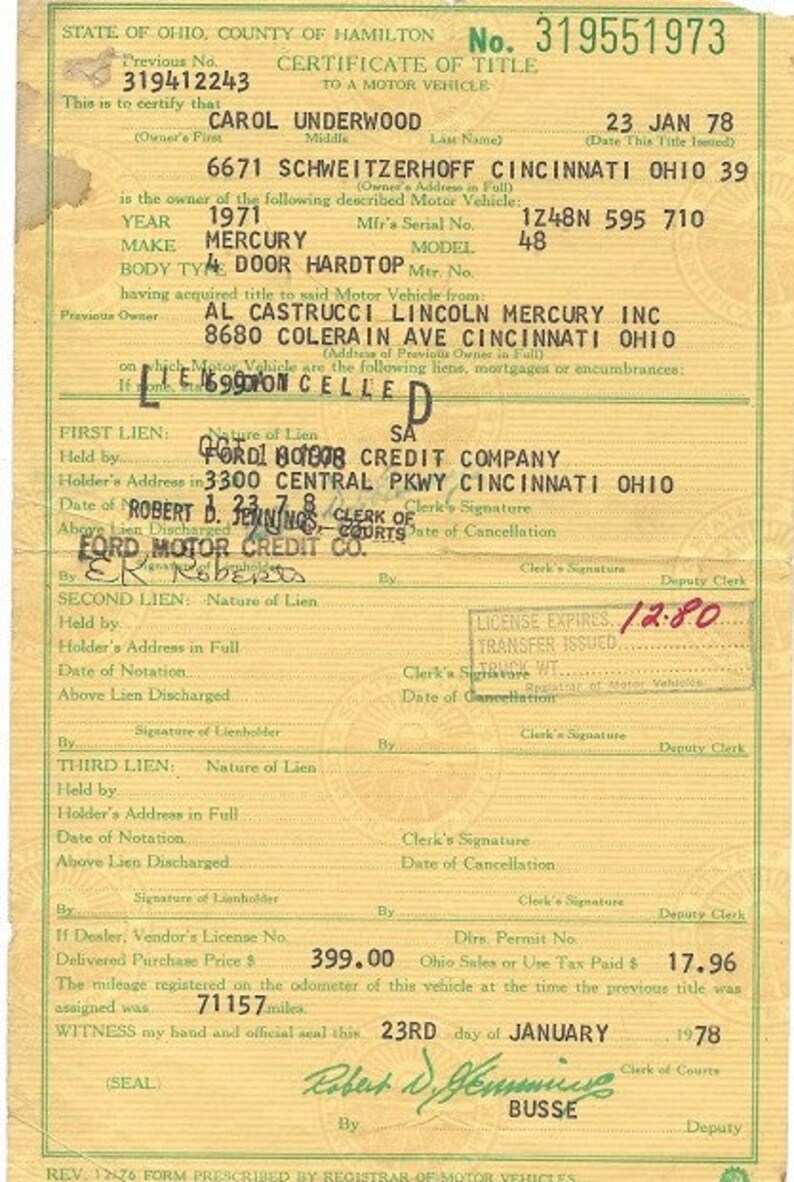 STATE OF OHIO, COUNTY OF HAMILTON No. 319551973
Previous No. CERTIFICATE OF TITLE
319412243 TO A MOTOR VEHICLE
This is to certify that
CAROL UNDERWOOD 23 JAN 78
(Owner's First Middle Last Name) (Date This Title Issued)
6671 SCHWEITZERHOFF CINCINNATI OHIO 39
(Owner's Address in Full)
is the owner of the following described Motor Vehicle:
YEAR 1971 Mfr's Serial No. 1Z48N 595 710
MAKE MERCURY MODEL 48
BODY TYPE 4 DOOR HARDTOP Mtr. No.
having acquired title to said Motor Vehicle from:
Previous Owner AL CASTRUCCI LINCOLN MERCURY INC
8680 COLERAIN AVE CINCINNATI OHIO
(Address of Previous Owner in Full)
on which Motor Vehicle are the following liens, mortgages or encumbrances:
If none,
LIEN CANCELLED
FIRST LIEN: Nature of Lien SA
Held by FORD MOTOR CREDIT COMPANY
Holder's Address in 3300 CENTRAL PKWY CINCINNATI OHIO
Date of 1 23 78 Clerk's Signature
ROBERT D. JENNINGS, CLERK OF COURTS
Above Lien Discharged Date of Cancellation
FORD MOTOR CREDIT CO.
Signature of Lienholder Clerk's Signature
By EK Roberts By Deputy Clerk
SECOND LIEN: Nature of Lien
LICENSE EXPIRES 12-80
Held by
TRANSFER ISSUED
Holder's Address in Full
TRUCK WT.
Date of Notation Clerk's Signature
Registrar of Motor Vehicles
Above Lien Discharged Date of Cancellation
Signature of Lienholder Clerk's Signature
By By Deputy Clerk
THIRD LIEN: Nature of Lien
Held by
Holder's Address in Full
Date of Notation Clerk's Signature
Above Lien Discharged Date of Cancellation
Signature of Lienholder Clerk's Signature
By By Deputy Clerk
If Dealer, Vendor's License No. Dlrs. Permit No.
Delivered Purchase Price $ 399.00 Ohio Sales or Use Tax Paid $ 17.96
The mileage registered on the odometer of this vehicle at the time the previous title was
assigned was 71157 miles.
WITNESS my hand and official seal this 23RD day of JANUARY 1978
(SEAL) Robert D. Jennings Clerk of Courts
BUSSE
By Deputy
REV. 12/76 FORM PRESCRIBED BY REGISTRAR OF MOTOR VEHICLES